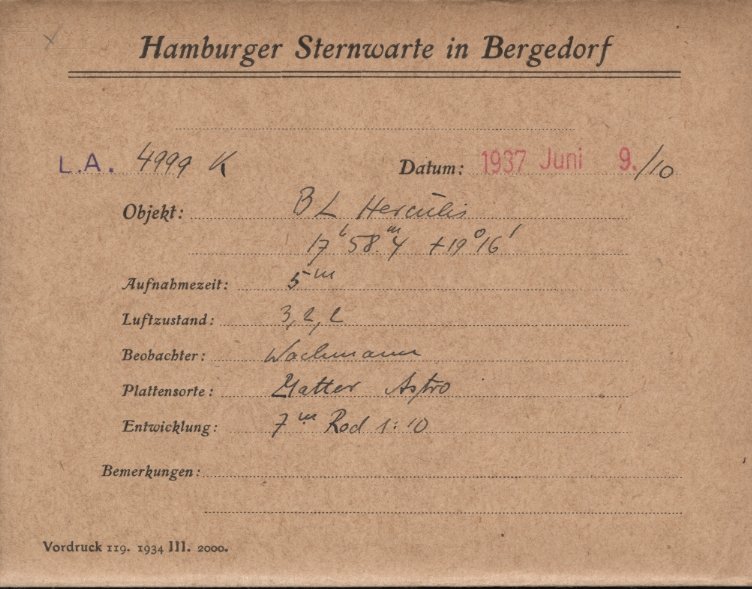 Hamburger Sternwarte in Bergedorf
L.A. 4999 K Datum: 1937 Juni 9./10
Objekt: BL Herculis
17ʰ58ᵐ.4 +19°16'
Aufnahmezeit: 5ᵐ
Luftzustand: 3,2,2
Beobachter: Wachmann
Plattensorte: Matter Astro
Entwicklung: 7ᵐ Rod 1:10
Bemerkungen:
Vordruck 119. 1934 III. 2000.